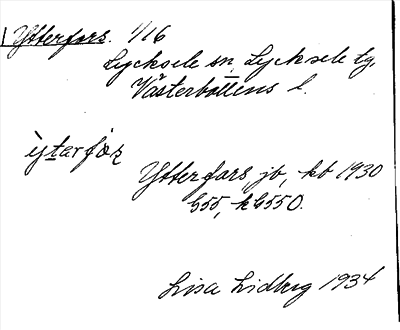 Ytterfors. 1/16
Lycksele sn, Lycksele tg,
Västerbottens l.
ỳtarfɔʂ
Ytterfors, jb, kb 1930
G55, kG550.
Lisa Lidberg 1934